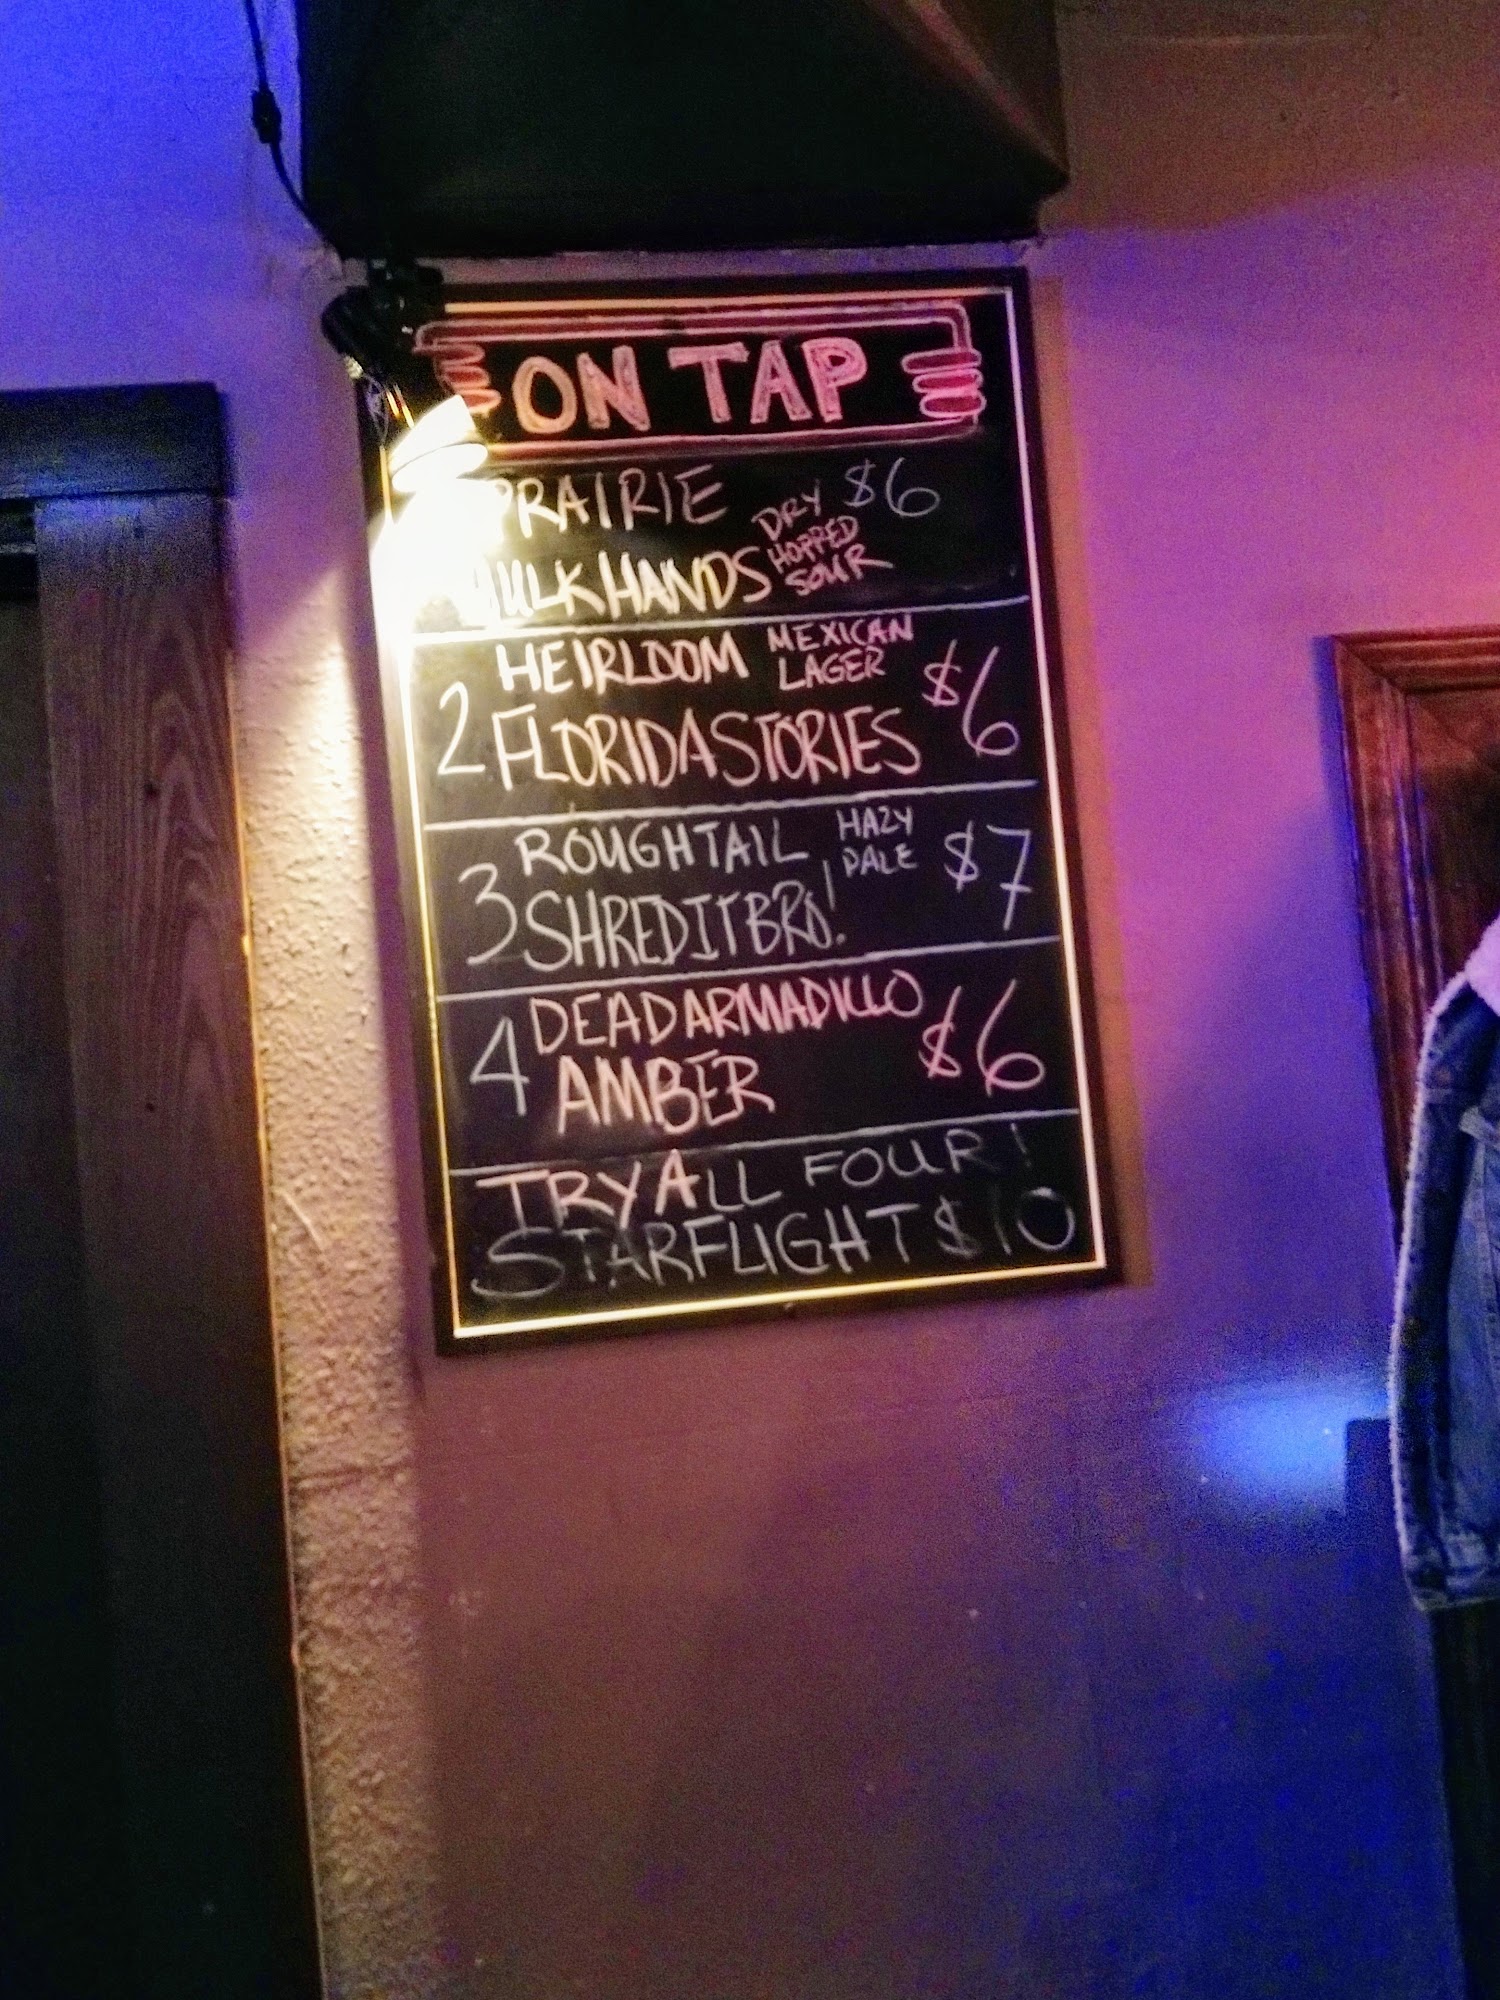 ON TAP
PRAIRIE DRY $6
HOPPED
HANDS SOUR
HEIRLOOM MEXICAN
LAGER $6
2 FLORIDA STORIES
ROUGHTAIL HAZY
PALE $7
3 SHRED IT BRO!
DEAD ARMADILLO $6
4 AMBER
TRY ALL FOUR!
STARFLIGHT $10